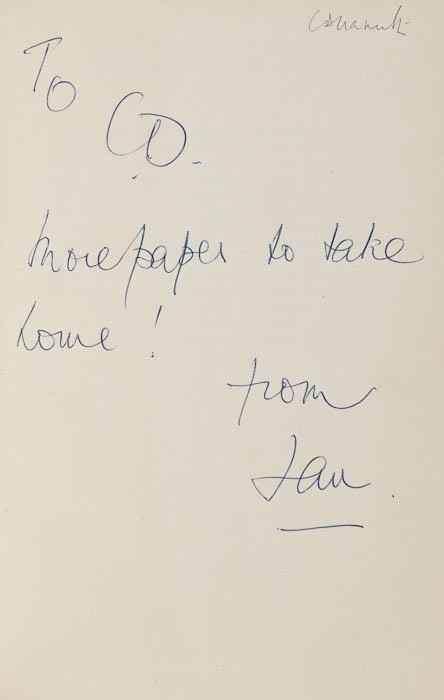 To
CD.
More paper to take
home!
from
Ian.